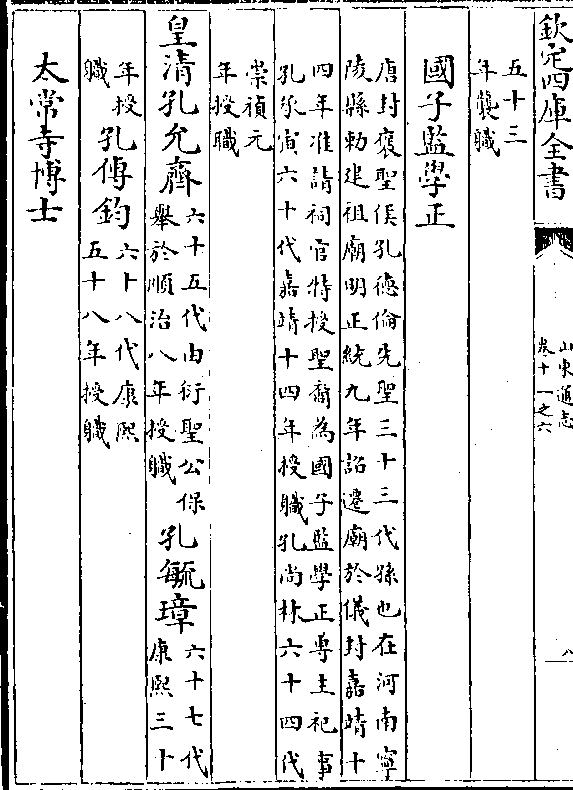 欽定四庫全書
山東通志
卷十一之六
八
五十三
年襲職
國子監學正
唐封褒聖侯孔德倫先聖三十三代孫也在河南寧
陵縣勅建祖廟明正統九年詔遷廟於儀封嘉靖十
四年准請祠官特授聖裔為國子監學正專主祀事
孔承寅六十代嘉靖十四年授職孔尚林六十四代
崇禎元
年授職
皇清孔允齊
六十五代由衍聖公保
舉於順治八年授職
孔毓璋
六十七代
康熙三十
年授
職
孔傳鈞
六十八代康熙
五十八年授職
太常寺博士